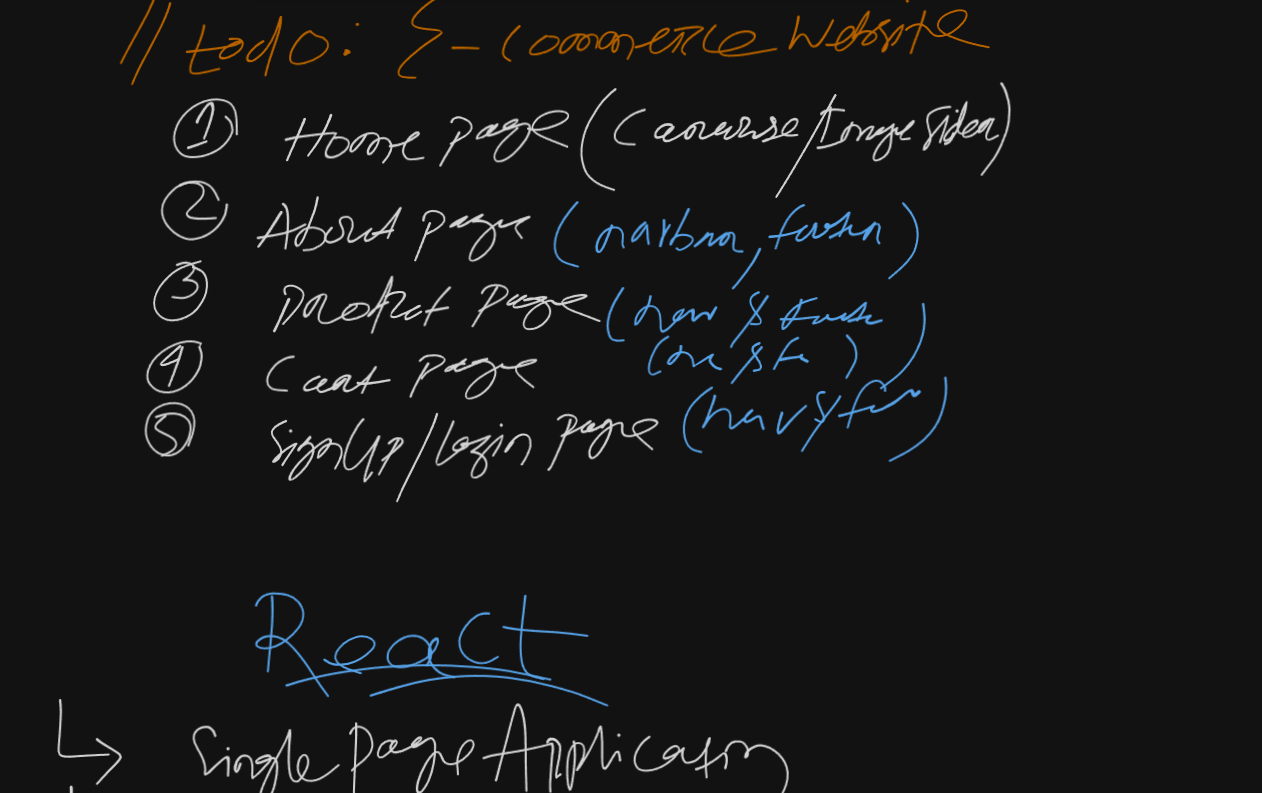 // todo: E-commerce website
① Home page (Carousel/Image slider)
② About page (navbar, footer)
③ Product page (nav & foote
④ Cart page (na & fo)
⑤ SignUP/Login page (nav & foo)
React
↳ Single Page Application